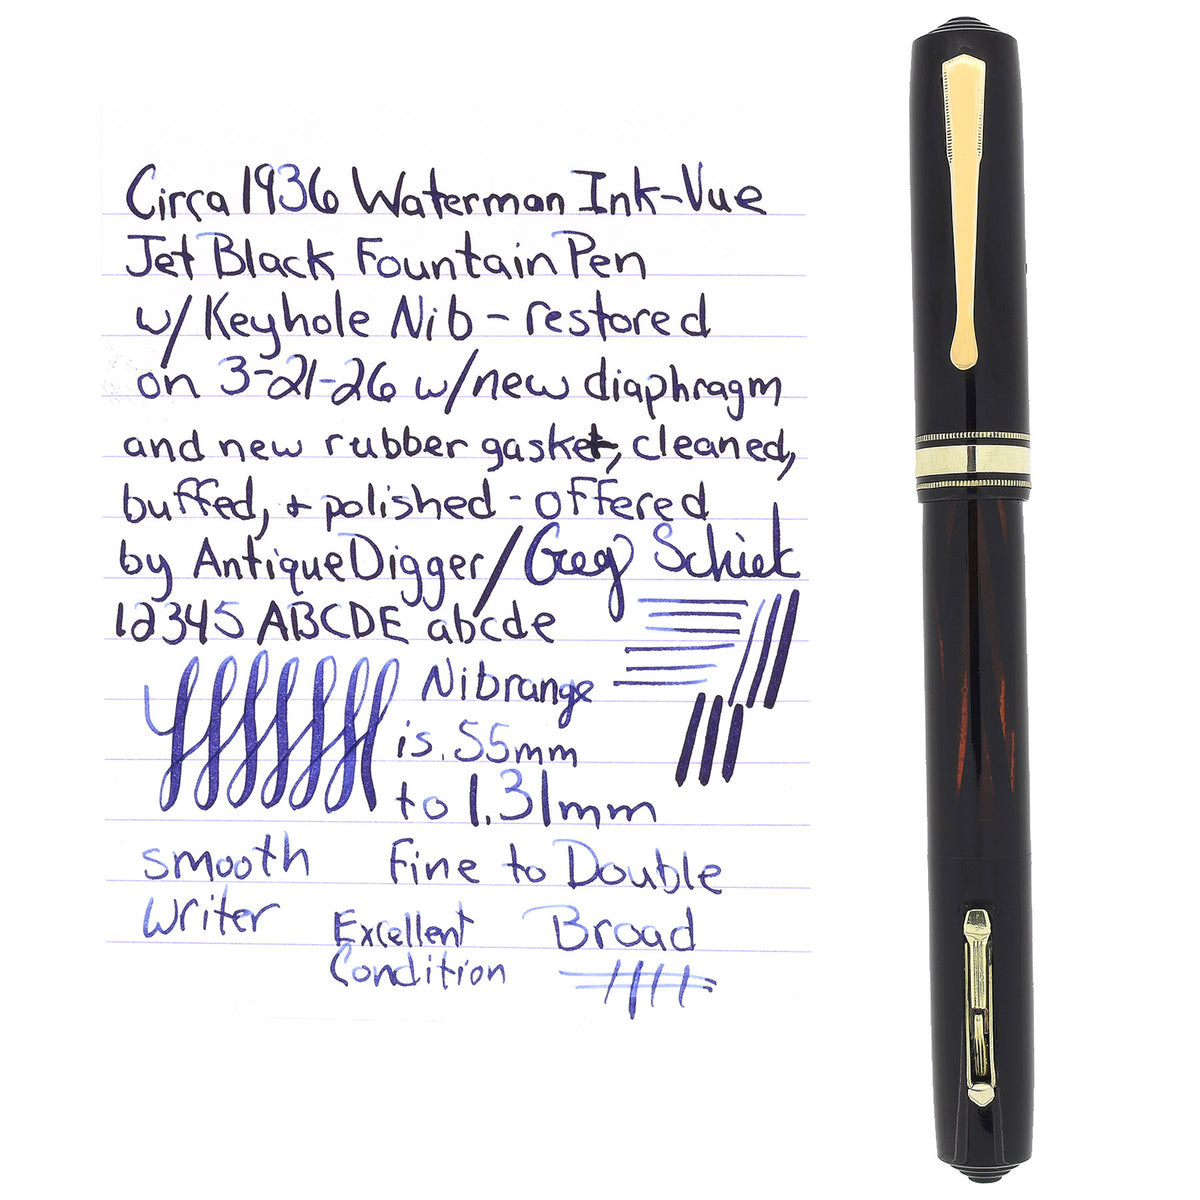 Circa 1936 Waterman Ink-Vue
Jet Black Fountain Pen
w/ Keyhole Nib - restored
on 3-21-26 w/new diaphragm
and new rubber gasket, cleaned,
buffed, + polished - offered
by AntiqueDigger/Greg Schiek
12345 ABCDE abcde
Nib range
is .55mm
to 1.31mm
smooth
writer
Fine to Double
Broad
Excellent
Condition